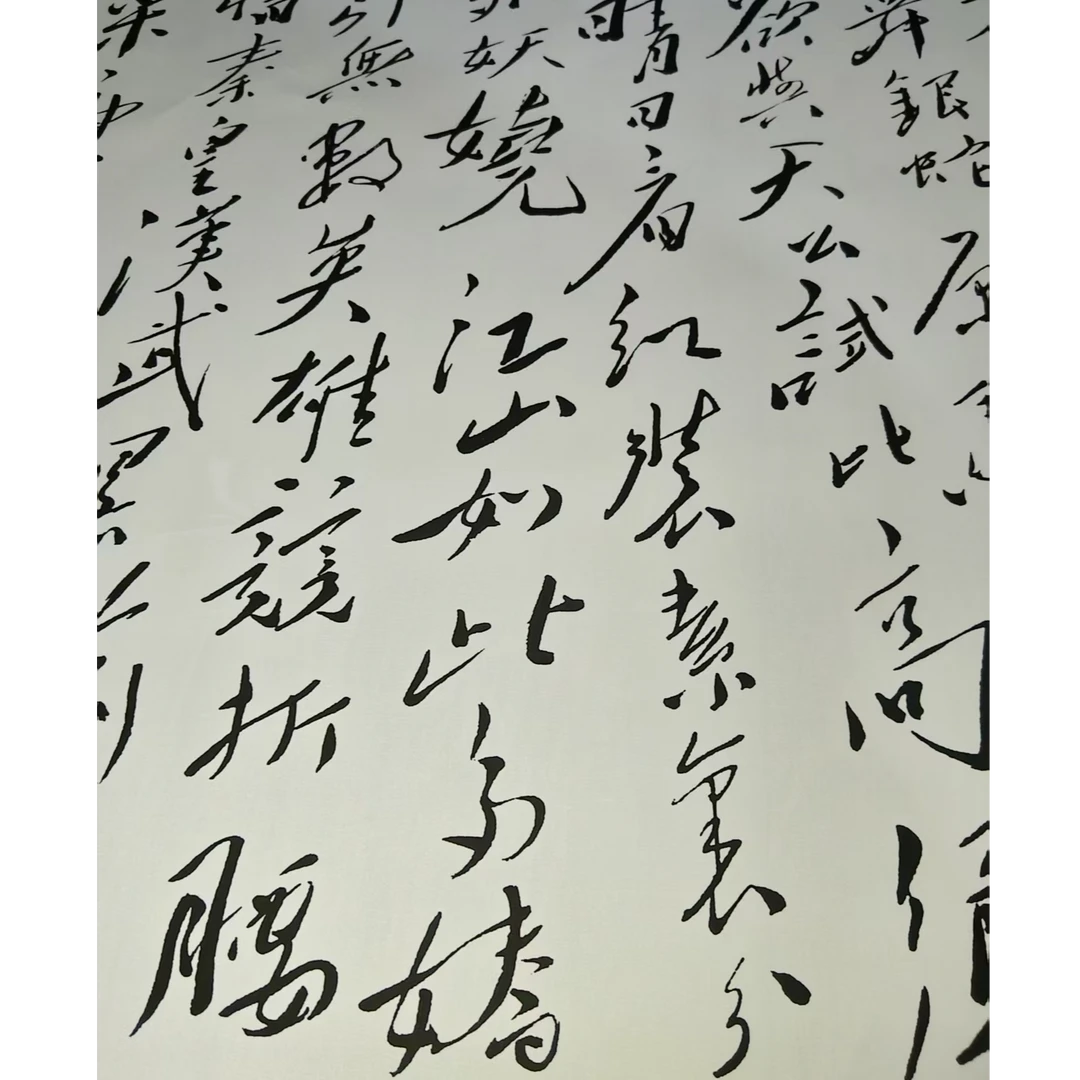 舞銀蛇原
欲與天公試比高須
晴日看紅裝素裹分
外妖嬈江山如此多嬌
引無數英雄競折腰
惜秦皇漢武